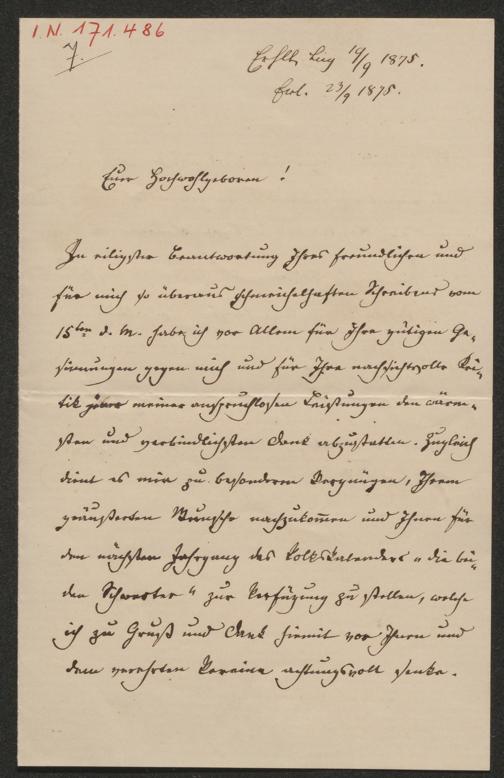 I.N. 171.486
7.
Erhlt. Lug 19/9 1875.
Erl. 23/9 1875.
Euer Hochwohlgeboren!
In eiligster Beantwortung Ihres freundlichen und
für mich so überaus schmeichelhaften Schreibens vom
15ten d. M. habe ich vor Allem für Ihre gütigen Ge-
sinnungen gegen mich und für Ihre nachsichtsvolle Kri-
tik meiner anspruchlosen Leistungen den wärm-
sten und verbindlichsten Dank abzustatten. Zugleich
dient es mir zu besonderem Vergnügen, Ihrem
geäußerten Wunsche nachzukommen und Ihnen für
den nächsten Jahrgang des Volkskalenders „die bei-
den Schwerter“ zur Verfügung zu stellen, welche
ich zu Gruß und Dank hiemit vor Ihnen und
dem verehrten Vereine achtungsvoll senke.